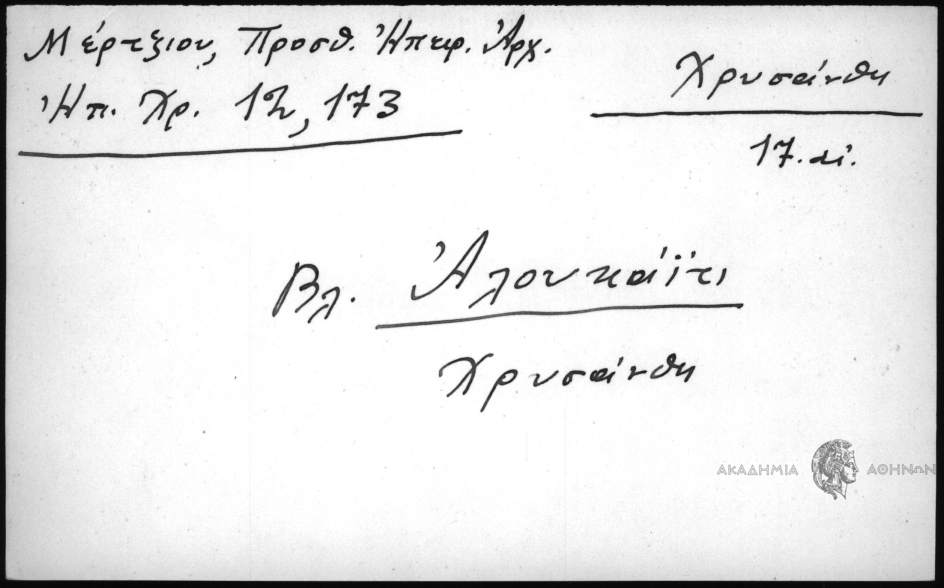 Μέρτζιου, Προσθ. Ἠπειρ. Ἀρχ.
Ἠπ. Χρ. 12, 173
Χρυσάνθη
17. αἰ.
Βλ. Ἀλουκάϊτι
Χρυσάνθη
ΑΚΑΔΗΜΙΑ ΑΘΗΝΩΝ